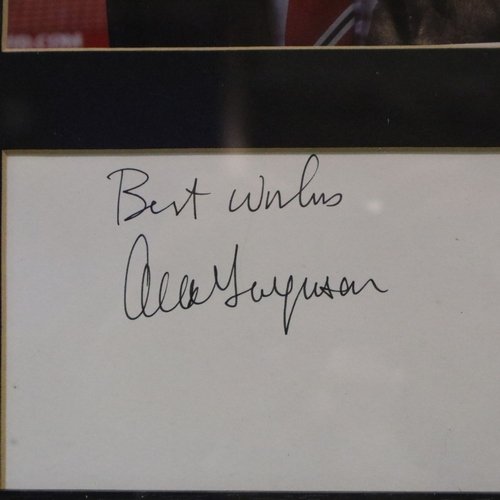 Best Wishes
Alex Ferguson